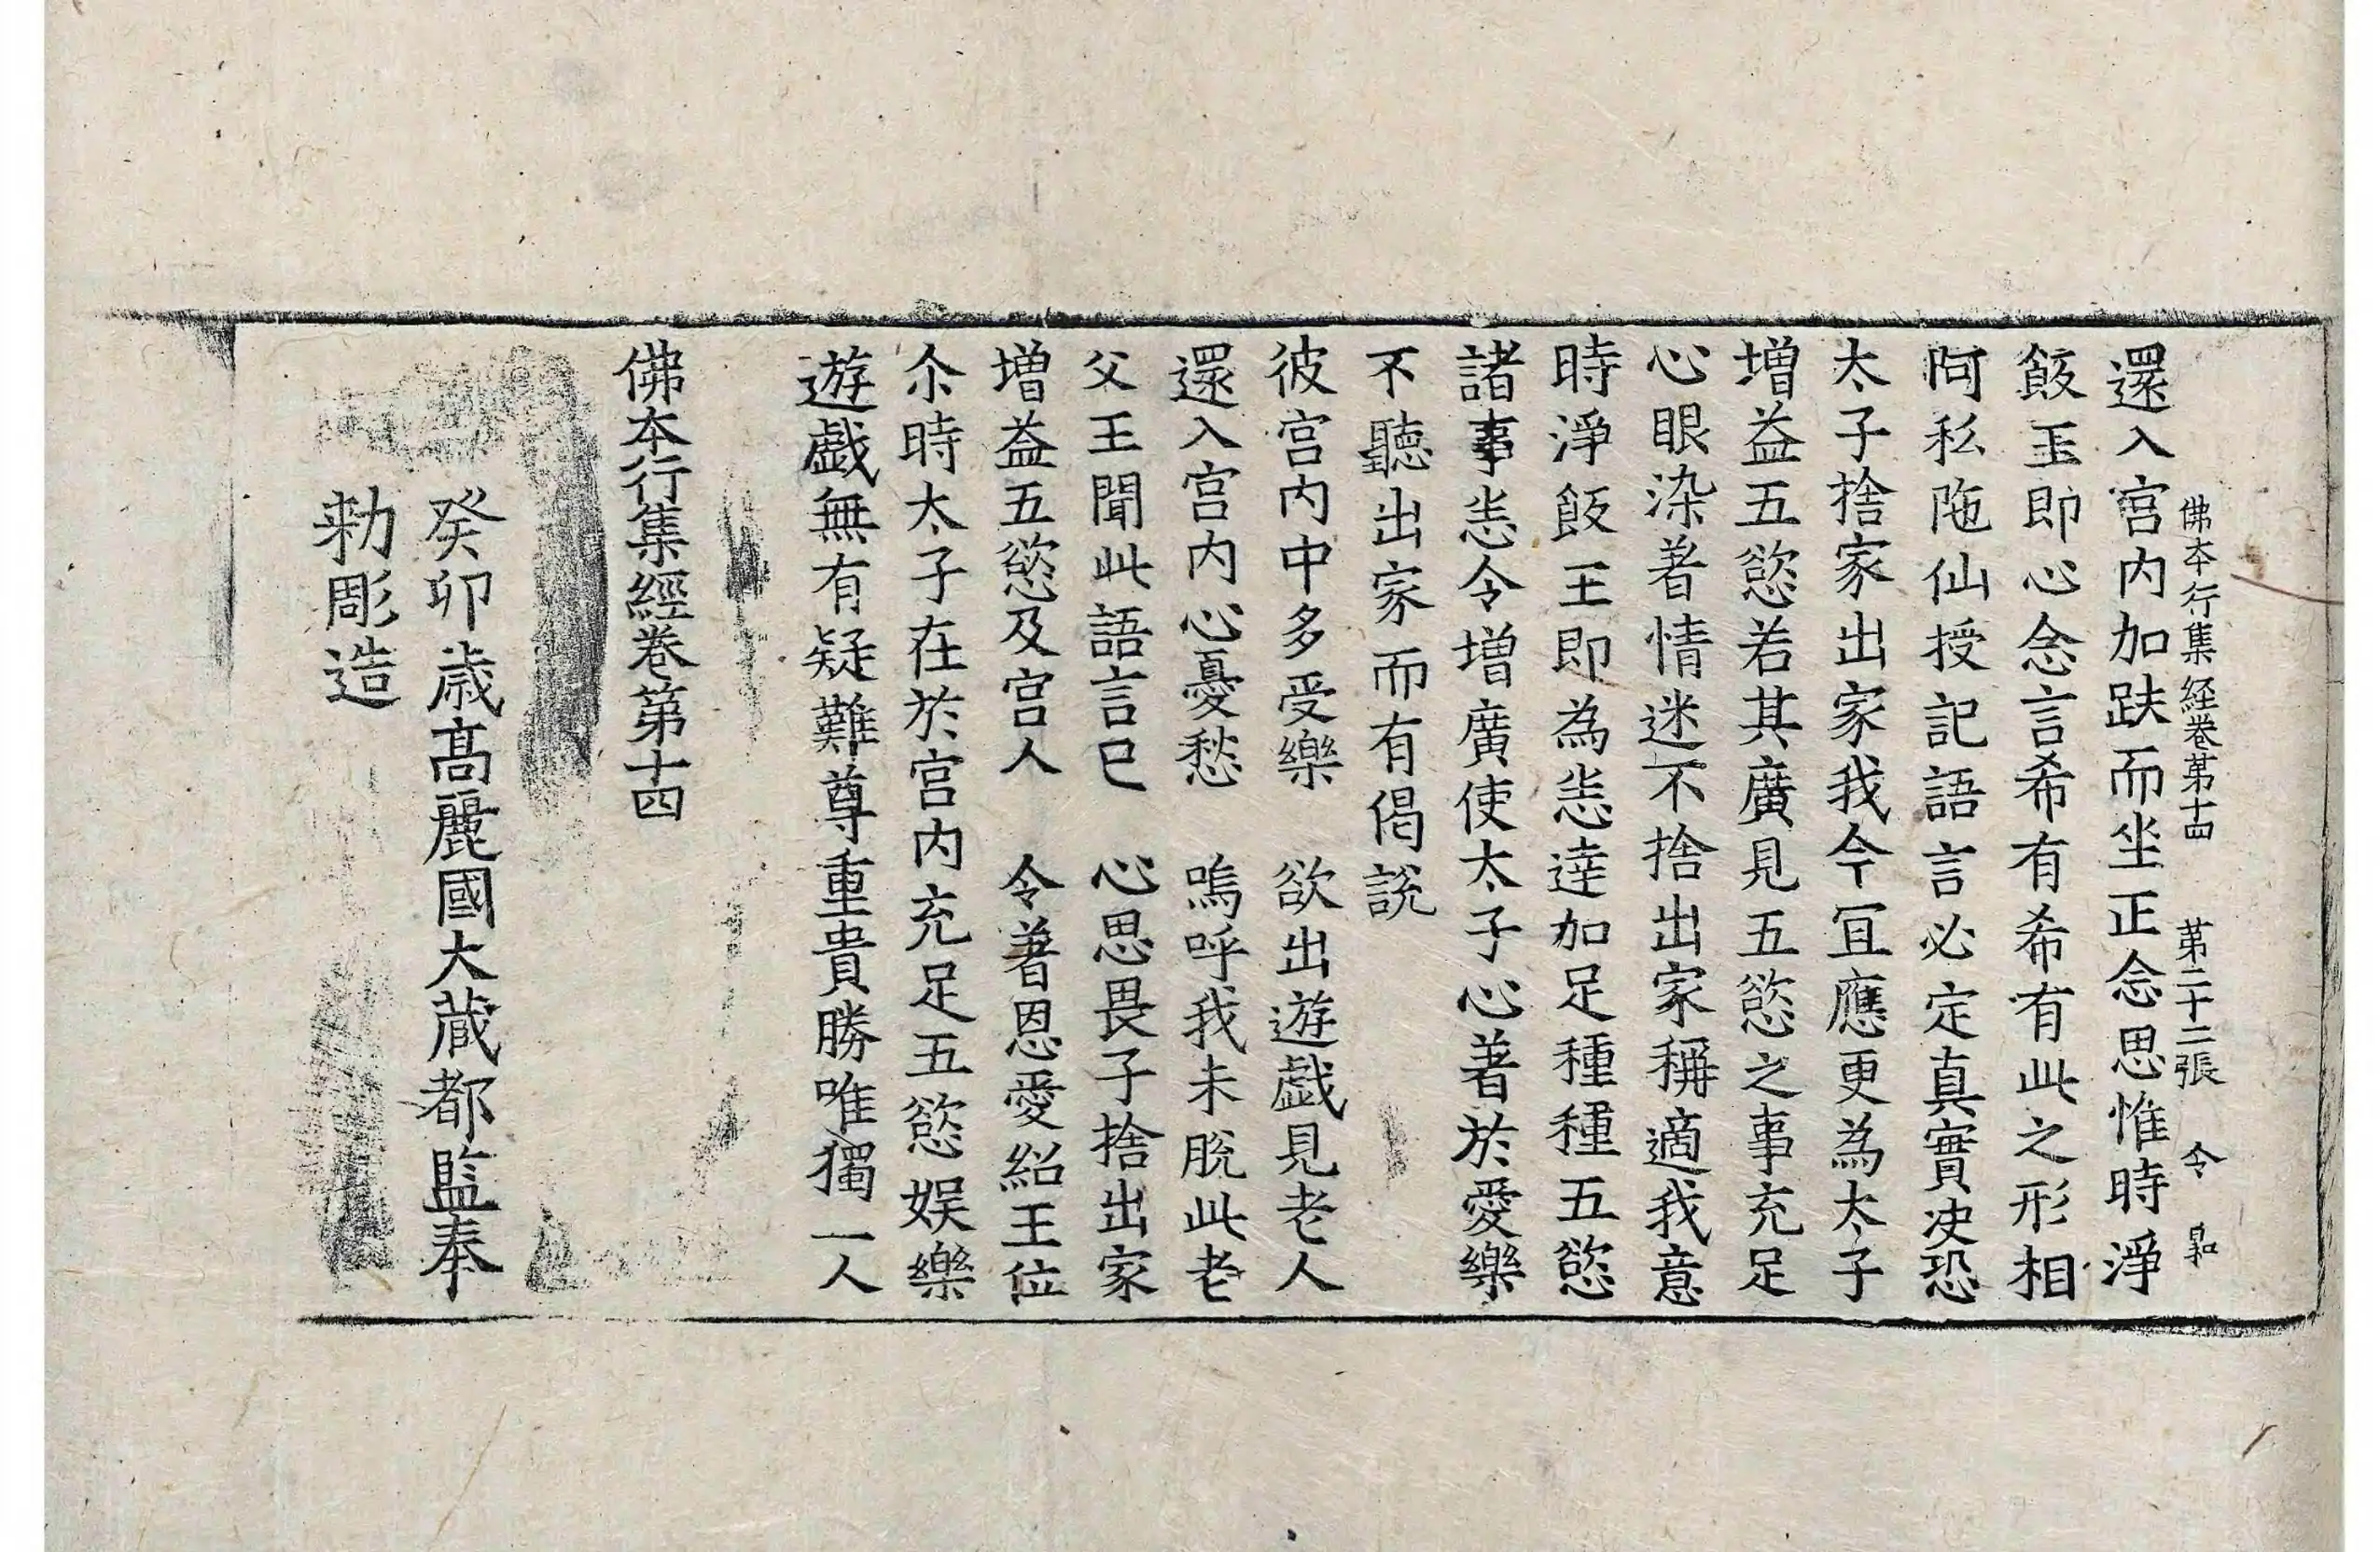 佛本行集経卷苐十四 苐二十二張 令
還入宮内加趺而坐正念思惟時淨
飯王即心念言希有希有此之形相
阿私陁仙授記語言必定真實决恐
太子捨家出家我今冝應更為太子
增益五慾若其廣見五慾之事充足
心眼染著情迷不捨出家稱適我意
時淨飯王即為恙逹加足種種五慾
諸事恙令增廣使太子心著於愛樂
不聽出家而有偈說
彼宮内中多受樂 欲出遊戲見老人
還入宮内心憂愁 嗚呼我未脫此老
父王聞此語言已 心思畏子捨出家
增益五慾及宮人 令著恩愛紹王位
尒時太子在於宮内充足五慾娱樂
遊戲無有疑難尊重貴勝唯獨一人
佛本行集經卷第十四
癸卯歲髙麗國大藏都監奉
勑彫造